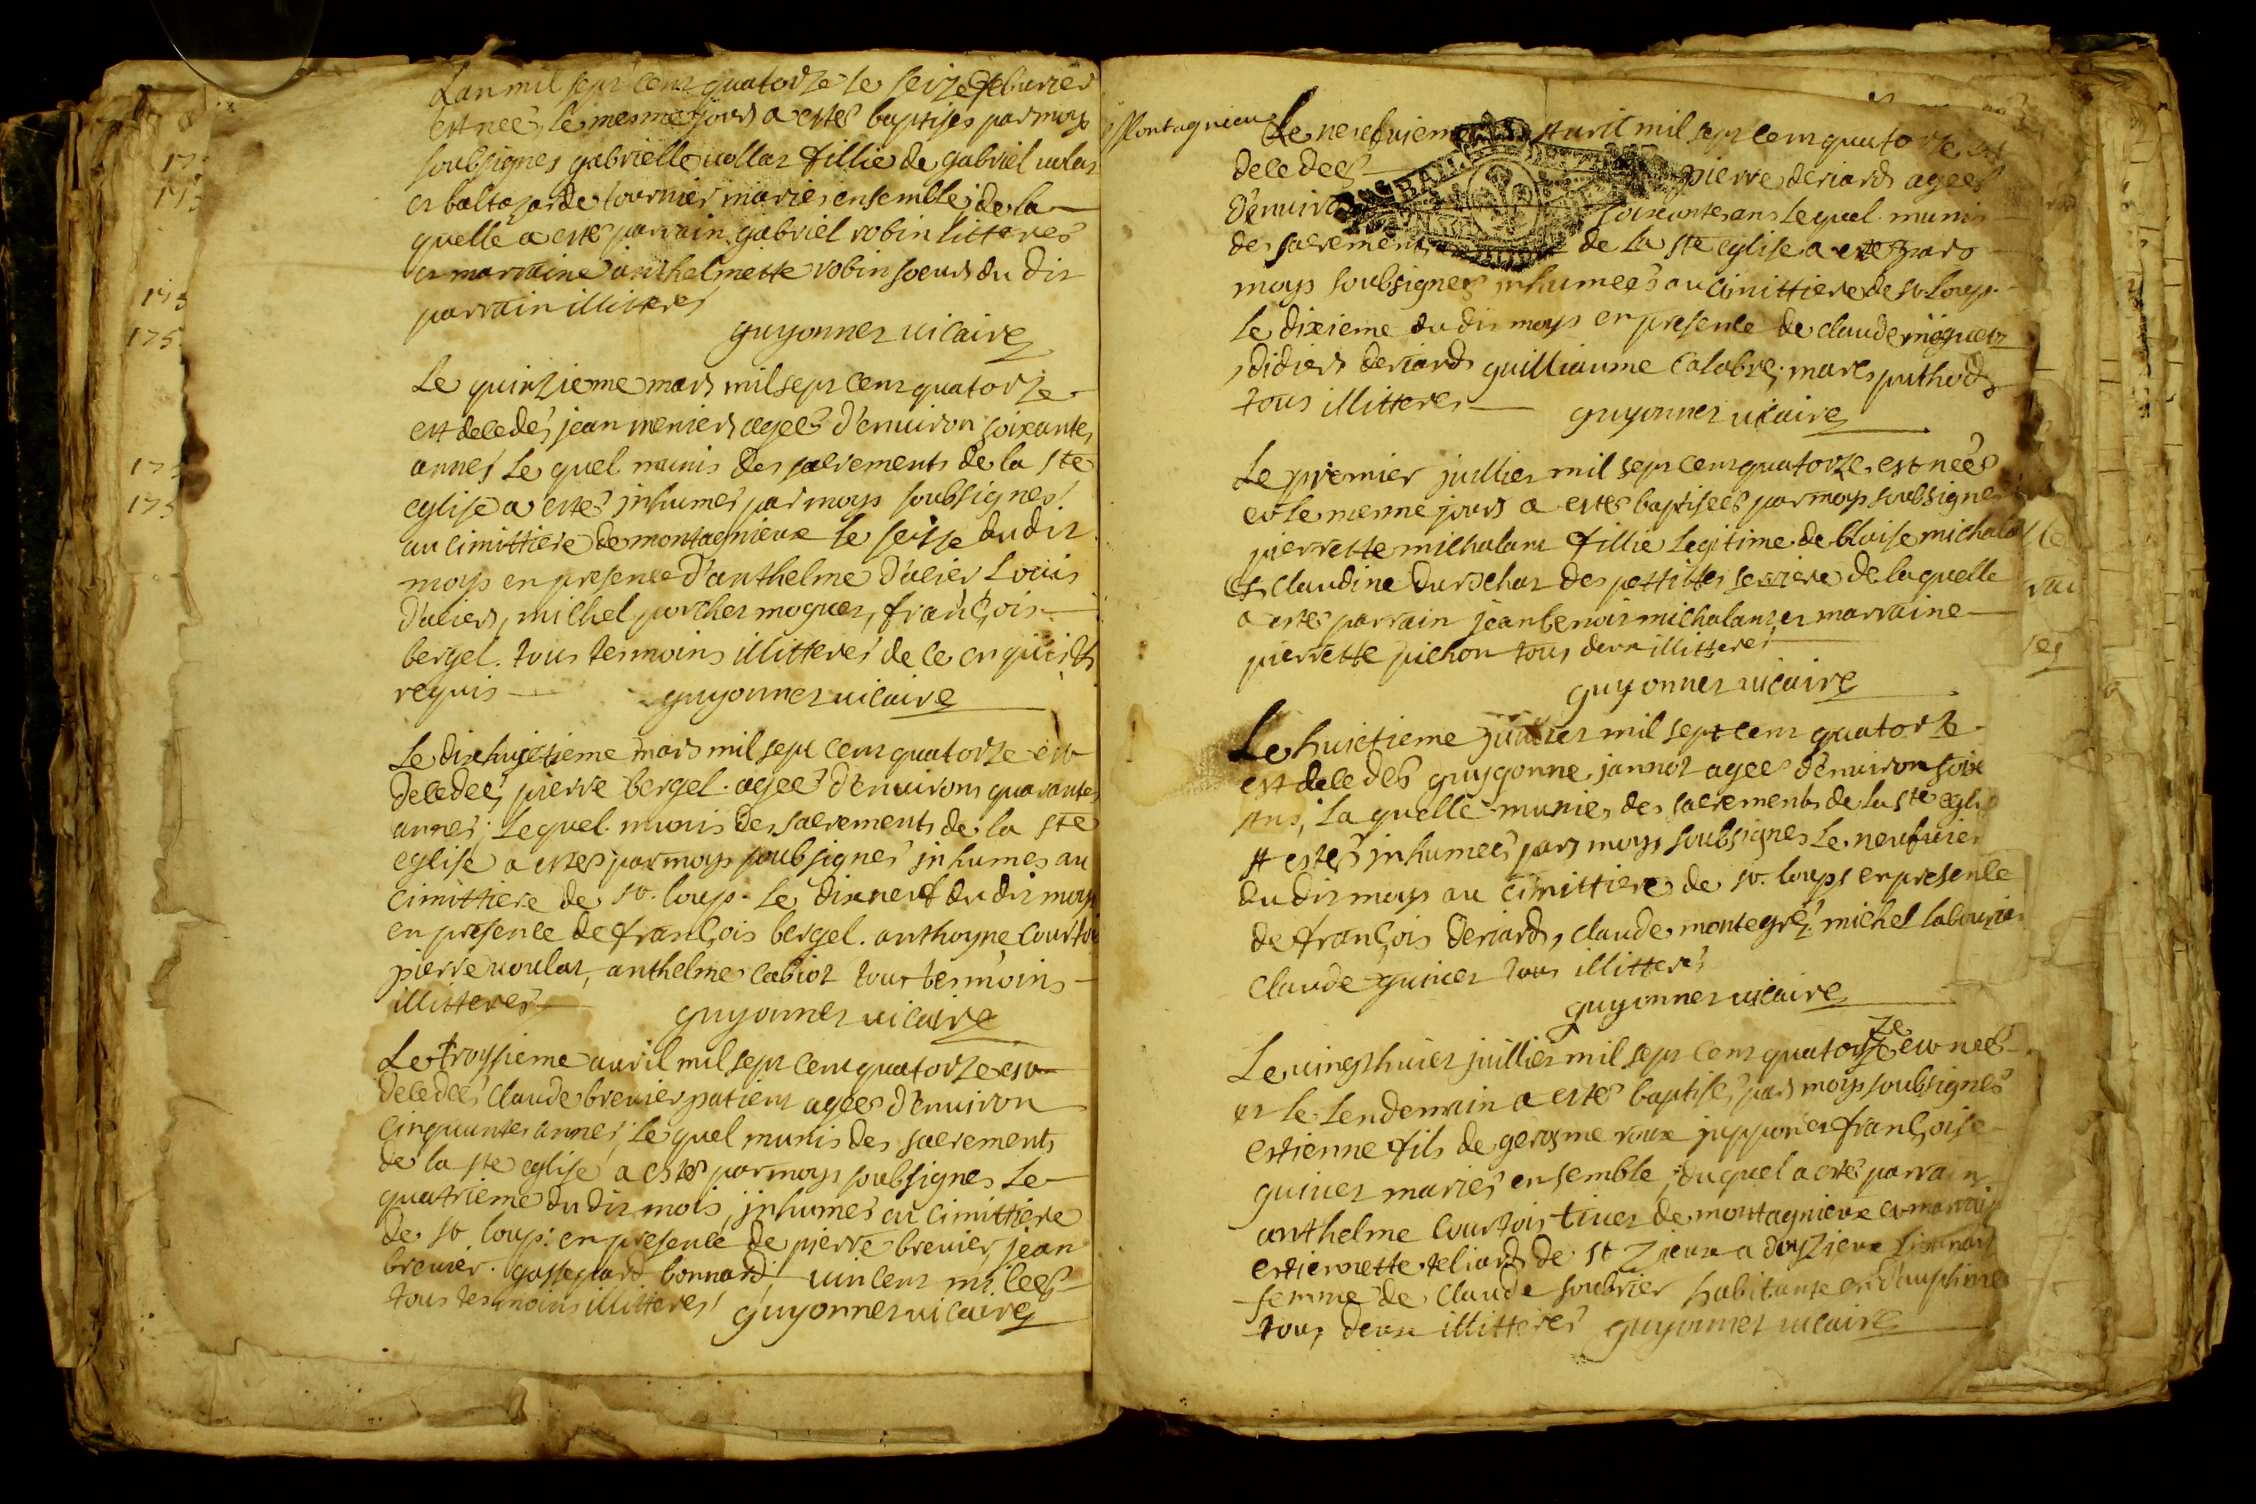 Lan mil sept cent quatorze le seize febvrier
est nee, le mesme jours a estes baptises par moys
soubsignes gabrielle vollat fillie de gabriel volat
et baltazarde tournier maries ensemble de la
quelle a estes parrain gabriel robin litteres
et marraine anthelmette robin soeurs du dit
parrain illitteres
guyonnet vicaire
Le quinzieme mars mil sept cent quatorze
est decedes jean menier agees d'environ soixantes
annes le quel munis des sacrements de la ste
eglise a estes inhumes par moys soubsignes
au cimittiere de montagnieux le seize du dit
moys en presence d'anthelme d'acier Louis
d'acier, michel porcher moguet, françois
bergel. tous tesmoins illitteres de ce enquis et
requis guyonnet vicaire
Le dixhuictieme mars mil sept cent quatorze est
decedees pierre bergel. agees d'environs quarantes
annes; lequel munis des sacrements de la ste
eglise a estes par moys soubsignes inhumes au
cimittiere de st. loup. le dixneuf du dit moys
en presence de françois bergel. anthoyne courtois
pierre voulat, anthelme cabiot tous tesmoins
illitteres guyonnet vicaire
Le troysieme avril mil sept cent quatorze est
decedees claude brevier patient agees d'environ
cinquantes annes, le quel munis des sacrements
de la ste eglise a estes par moys soubsignes le
quatrieme du dit mois, inhumes au cimittiere
de st. loup. en presence de pierre brevier jean
brevier. gasspard bonnard, vincent
tous tesmoins illitteres guyonnet vicaire
Montagnieux
Le neufvieme avril mil sept cent quatorze est
decedees pierre deriard agees
d'environ soixantes ans lequel munis
des sacrements de la ste eglise a estes par
moys soubsignes inhumees au cimittiere de st loup
le dixieme du dit moys en presence de claude moguet
didier deriard guilliaume calabre, marc puthod
tous illitteres guyonnet vicaire
Le premier juillier mil sept cent quatorze est nees
et le mesme jours a estes baptisees par moys soubsignes
pierrette michalant fillie legitime de blaise michala
et claudine durochat des pettittes serriere de laquelle
a estes parrain jean benoit michalant et marraine
pierrette pichon tous deux illitteres
guyonnet vicaire
Le huictieme juillier mil sept cent quatorze
est decedes guygonne jannot agees d'environ soix
ans, la quelle munies des sacrements de la ste eglis
a estes inhumees pars moys soubsignes le neufvie
du dit moys au cimittiere de st. loups en presence
de françois deriard, claude montegre michel labouri
claude guinet tous illitteres
guyonnet vicaire
Le vingt huict juillier mil sept cent quatorze est nees
ze
et le lendemain a estes baptises par moys soubsignes
estienne fils de gerosme roux juppon et françoise
guinet maries ensemble, duquel a estes parrain
anthelme courtois tinet de montagnieux et marrain
estiennette teliard de st
femme de claude soubrier habitante en
tous deux illitteres guyonnet vicaire